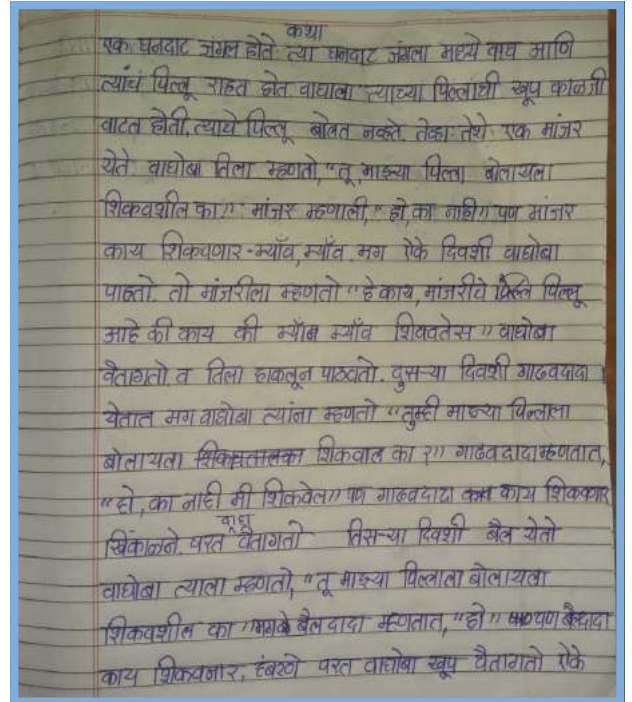 कथा
एक घनदाट जंगल होते त्या घनदाट जंगला मध्ये वाघ आणि
त्यांचं पिल्लू राहत होत वाघाला त्याच्या पिल्लांची खूप काळजी
वाटत होती. त्याचे पिल्लू बोलत नव्हते. तेव्हा तेथे एक मांजर
येते वाघोबा तिला म्हणतो, "तू माझ्या पिल्ला बोलायला
शिकवशील का?" मांजर म्हणाली, "हो, का नाही" पण मांजर
काय शिकवणार - म्याँव, म्याँव. मग ऐके दिवशी वाघोबा
पाहतो. तो मांजरीला म्हणतो "हे काय, मांजरीचे पिल्लू
आहे की काय की म्याँव म्याँव शिकवतेस" वाघोबा
वैतागतो व तिला हाकलून पाठवतो. दुसऱ्या दिवशी गाढवदादा
येतात मग वाघोबा त्यांना म्हणतो "तुम्ही माझ्या पिल्लाला
बोलायला शिकवाल का?" गाढवदादा म्हणतात,
"हो, का नाही मी शिकवेल" पण गाढवदादा काय शिकवणार
खिंकाळने. परत वाघ वैतागतो तिसऱ्या दिवशी बैल येतो
वाघोबा त्याला म्हणतो, "तू माझ्या पिल्लाला बोलायला
शिकवशील का" बैलदादा म्हणतात, "हो" पण बैलदादा
काय शिकवनार, हंबरणे परत वाघोबा खूप वैतागतो ऐके